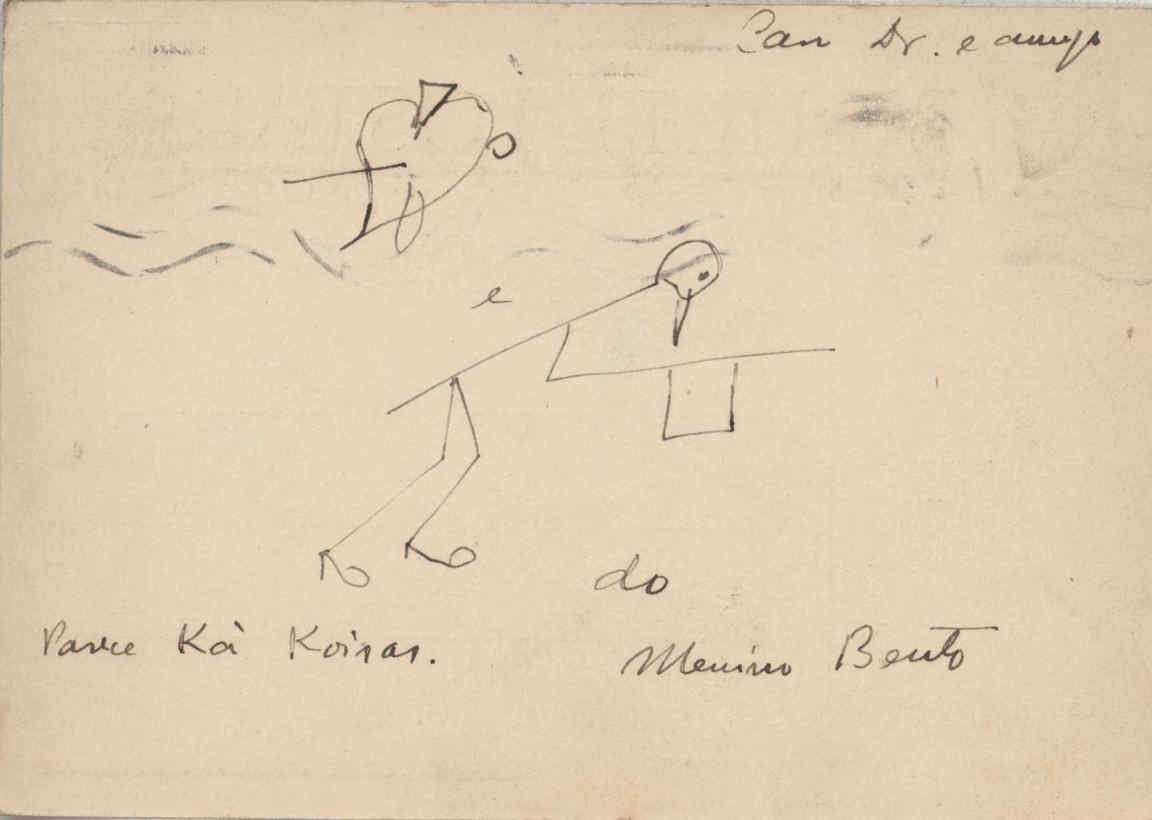 Caro Dr. e amigo
e
do
Parece Kà Koisas.
Menino Bento